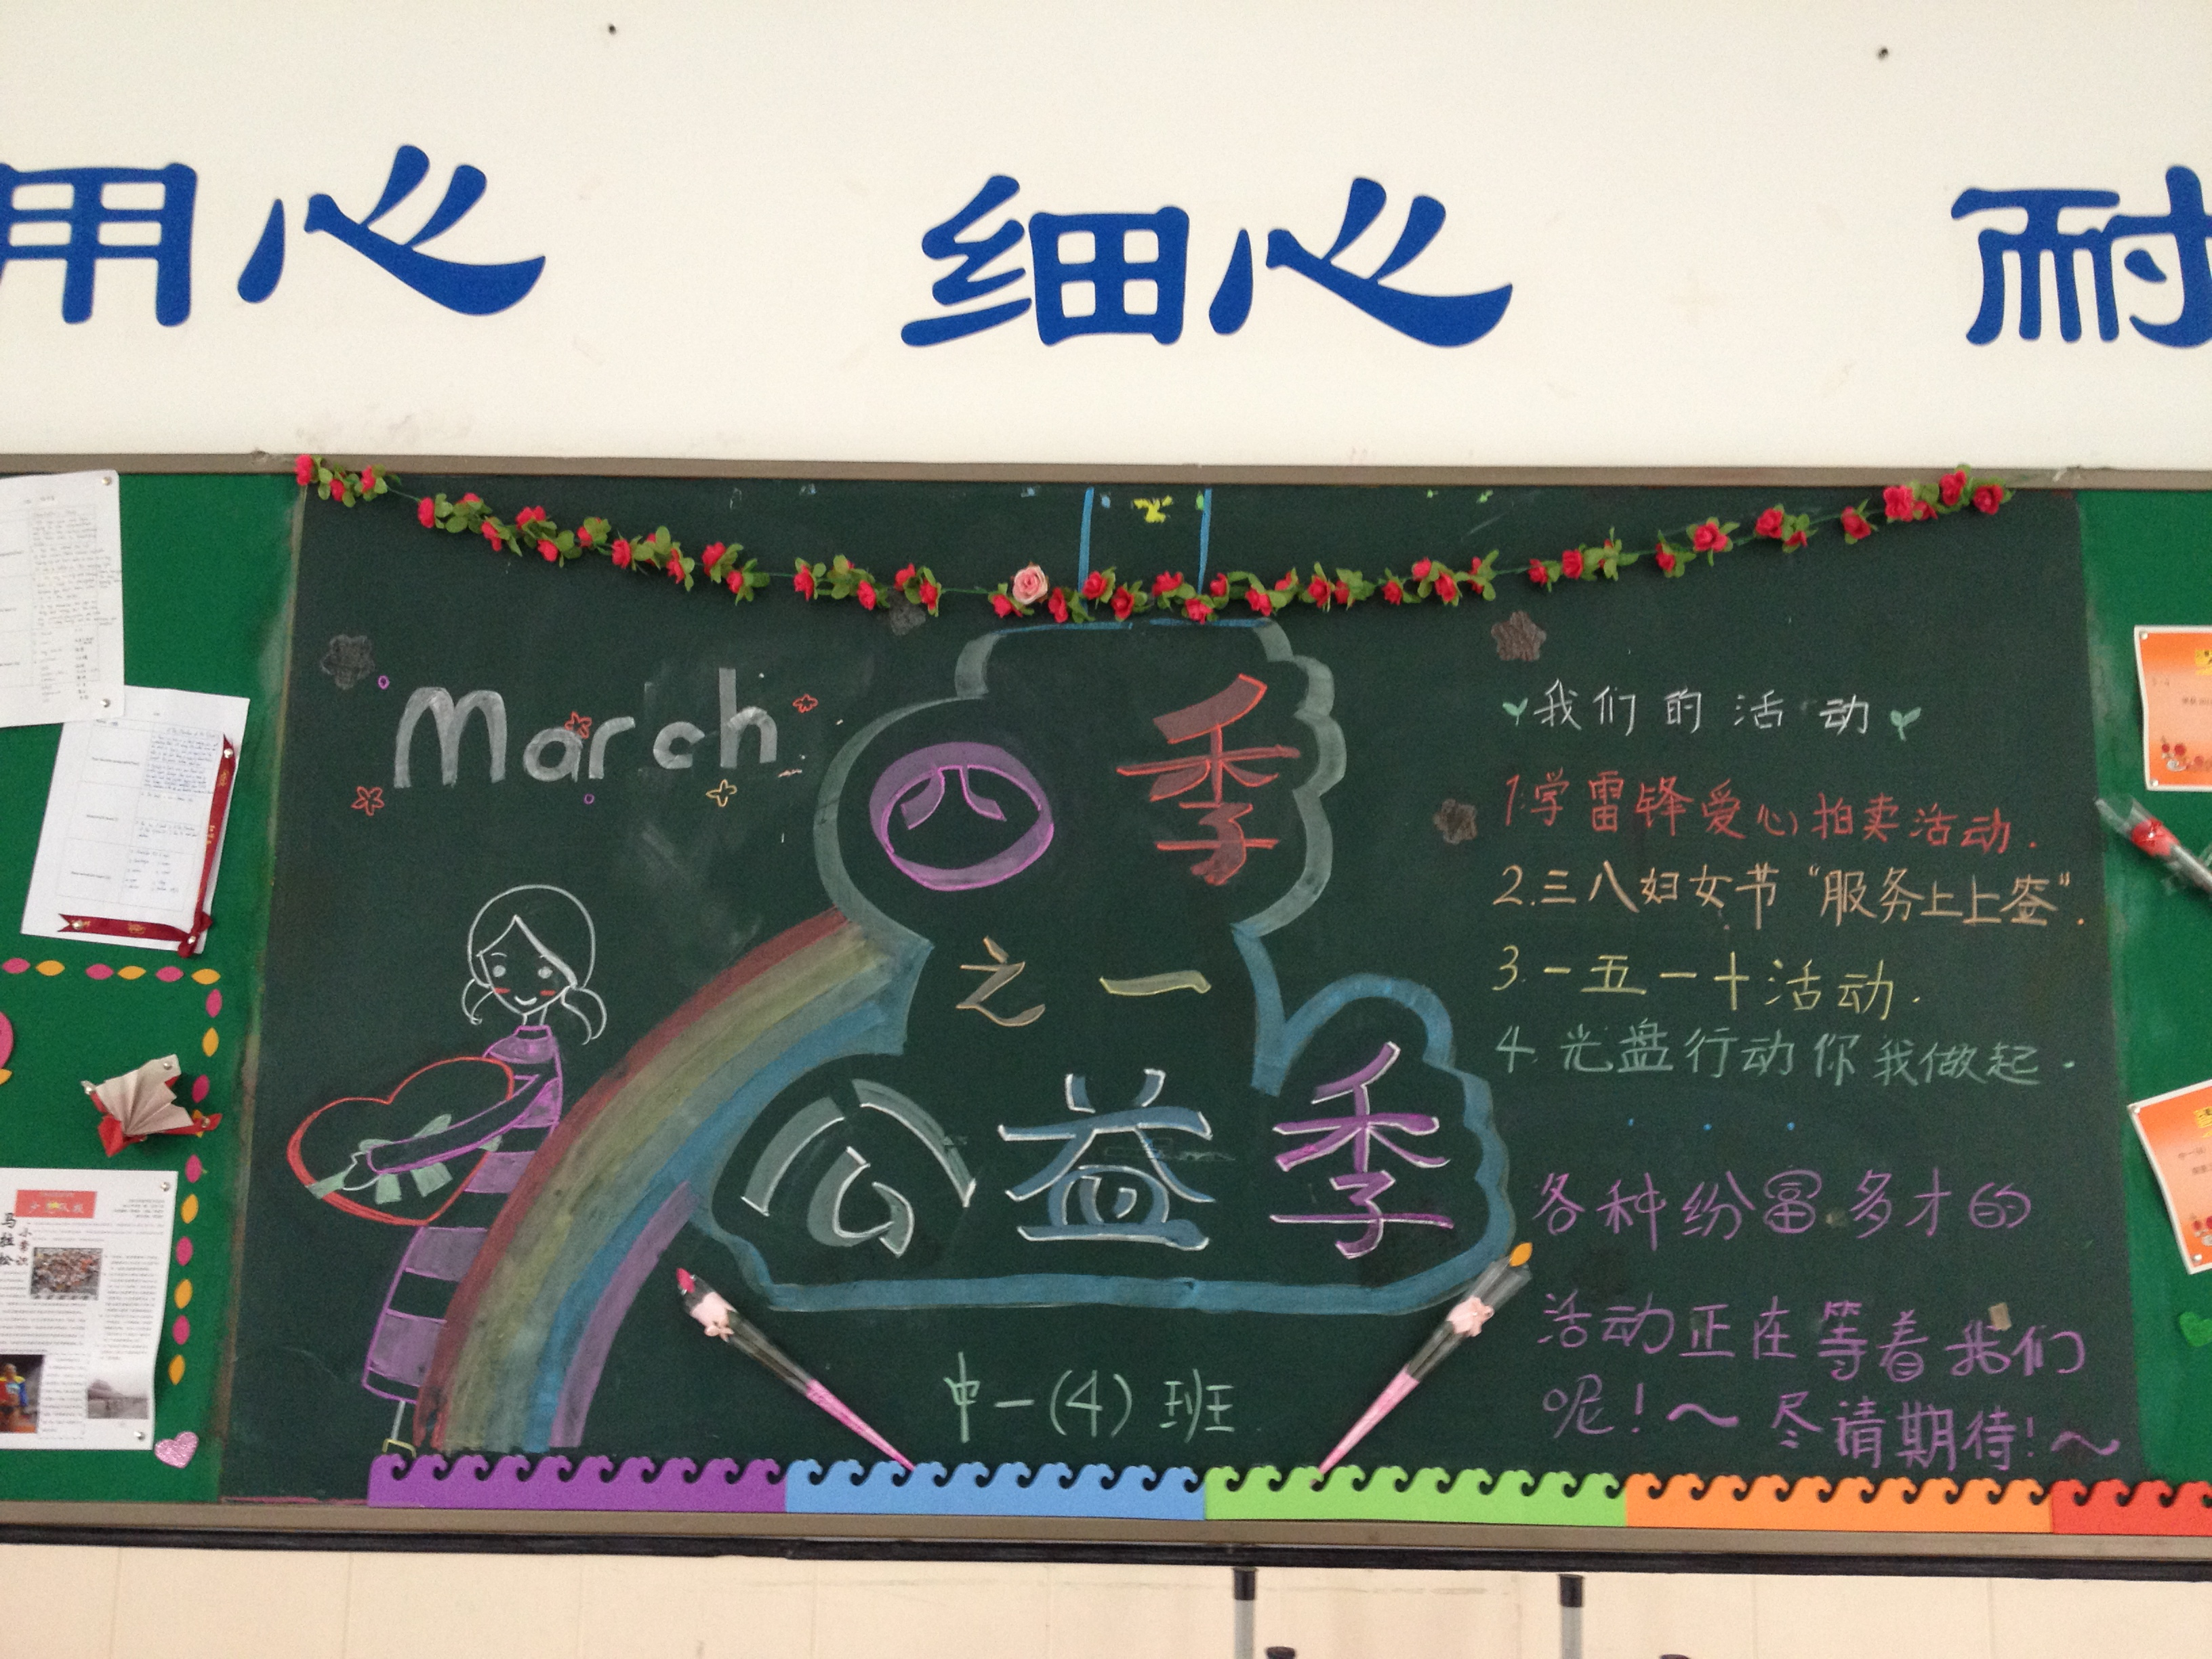 用心 细心 耐
March
四季
之一
公益季
中一(4)班
我们的活动
1.学雷锋爱心拍卖活动.
2.三八妇女节“服务上上签”.
3.一五一十活动.
4.光盘行动你我做起.
各种纷富多才的
活动正在等着我们
呢!～尽请期待!～
马拉松
小常识